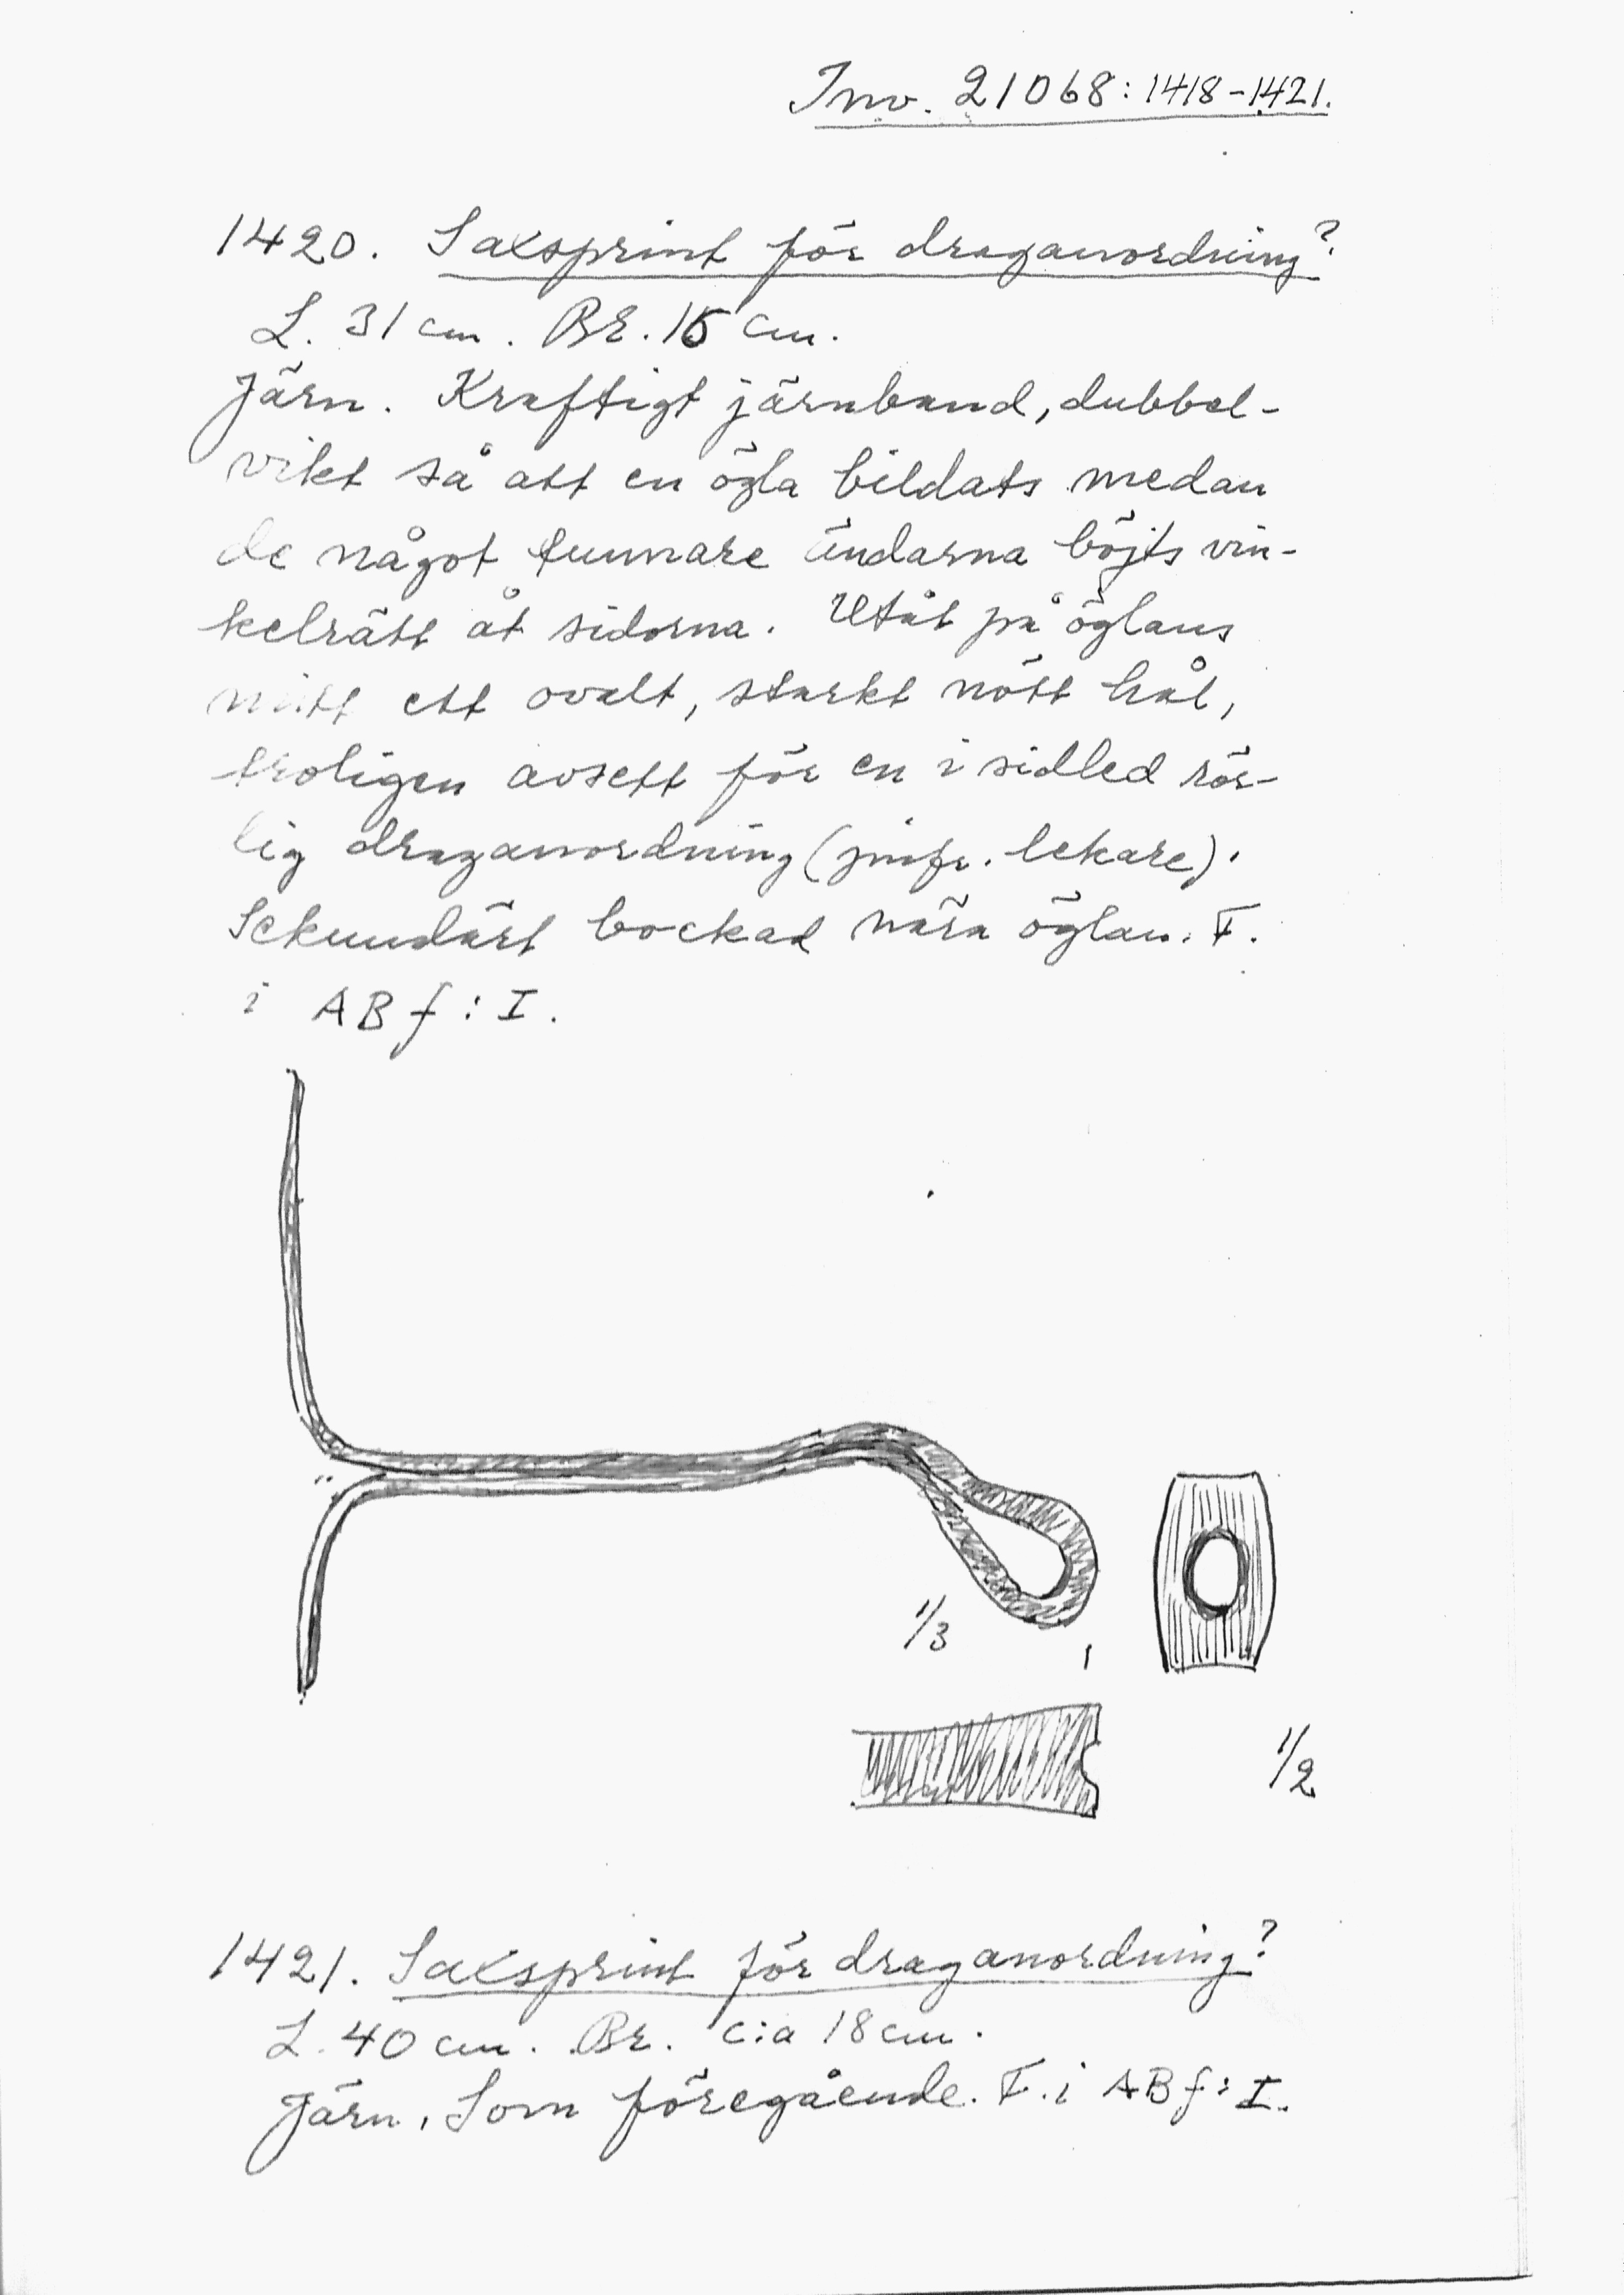 Inv. 21068:1418-1421.
1420. Saxsprint för draganordning?
L. 31 cm. Br. 15 cm.
Järn. Kraftigt järnband, dubbel-
vikt så att en ögla bildats medan
de något tunnare ändarna böjts vin-
kelrätt åt sidorna. Utåt på öglans
mitt ett ovalt, starkt nött hål,
troligen avsett för en i sidled rör-
lig draganordning (jmfr. lekare).
Sekundärt bockad nära öglan. F.
i ABf:I.
1/3
1/2
1421. Saxsprint för draganordning?
L. 40 cm. Br. c:a 18 cm.
Järn. Som föregående. F. i ABf:I.